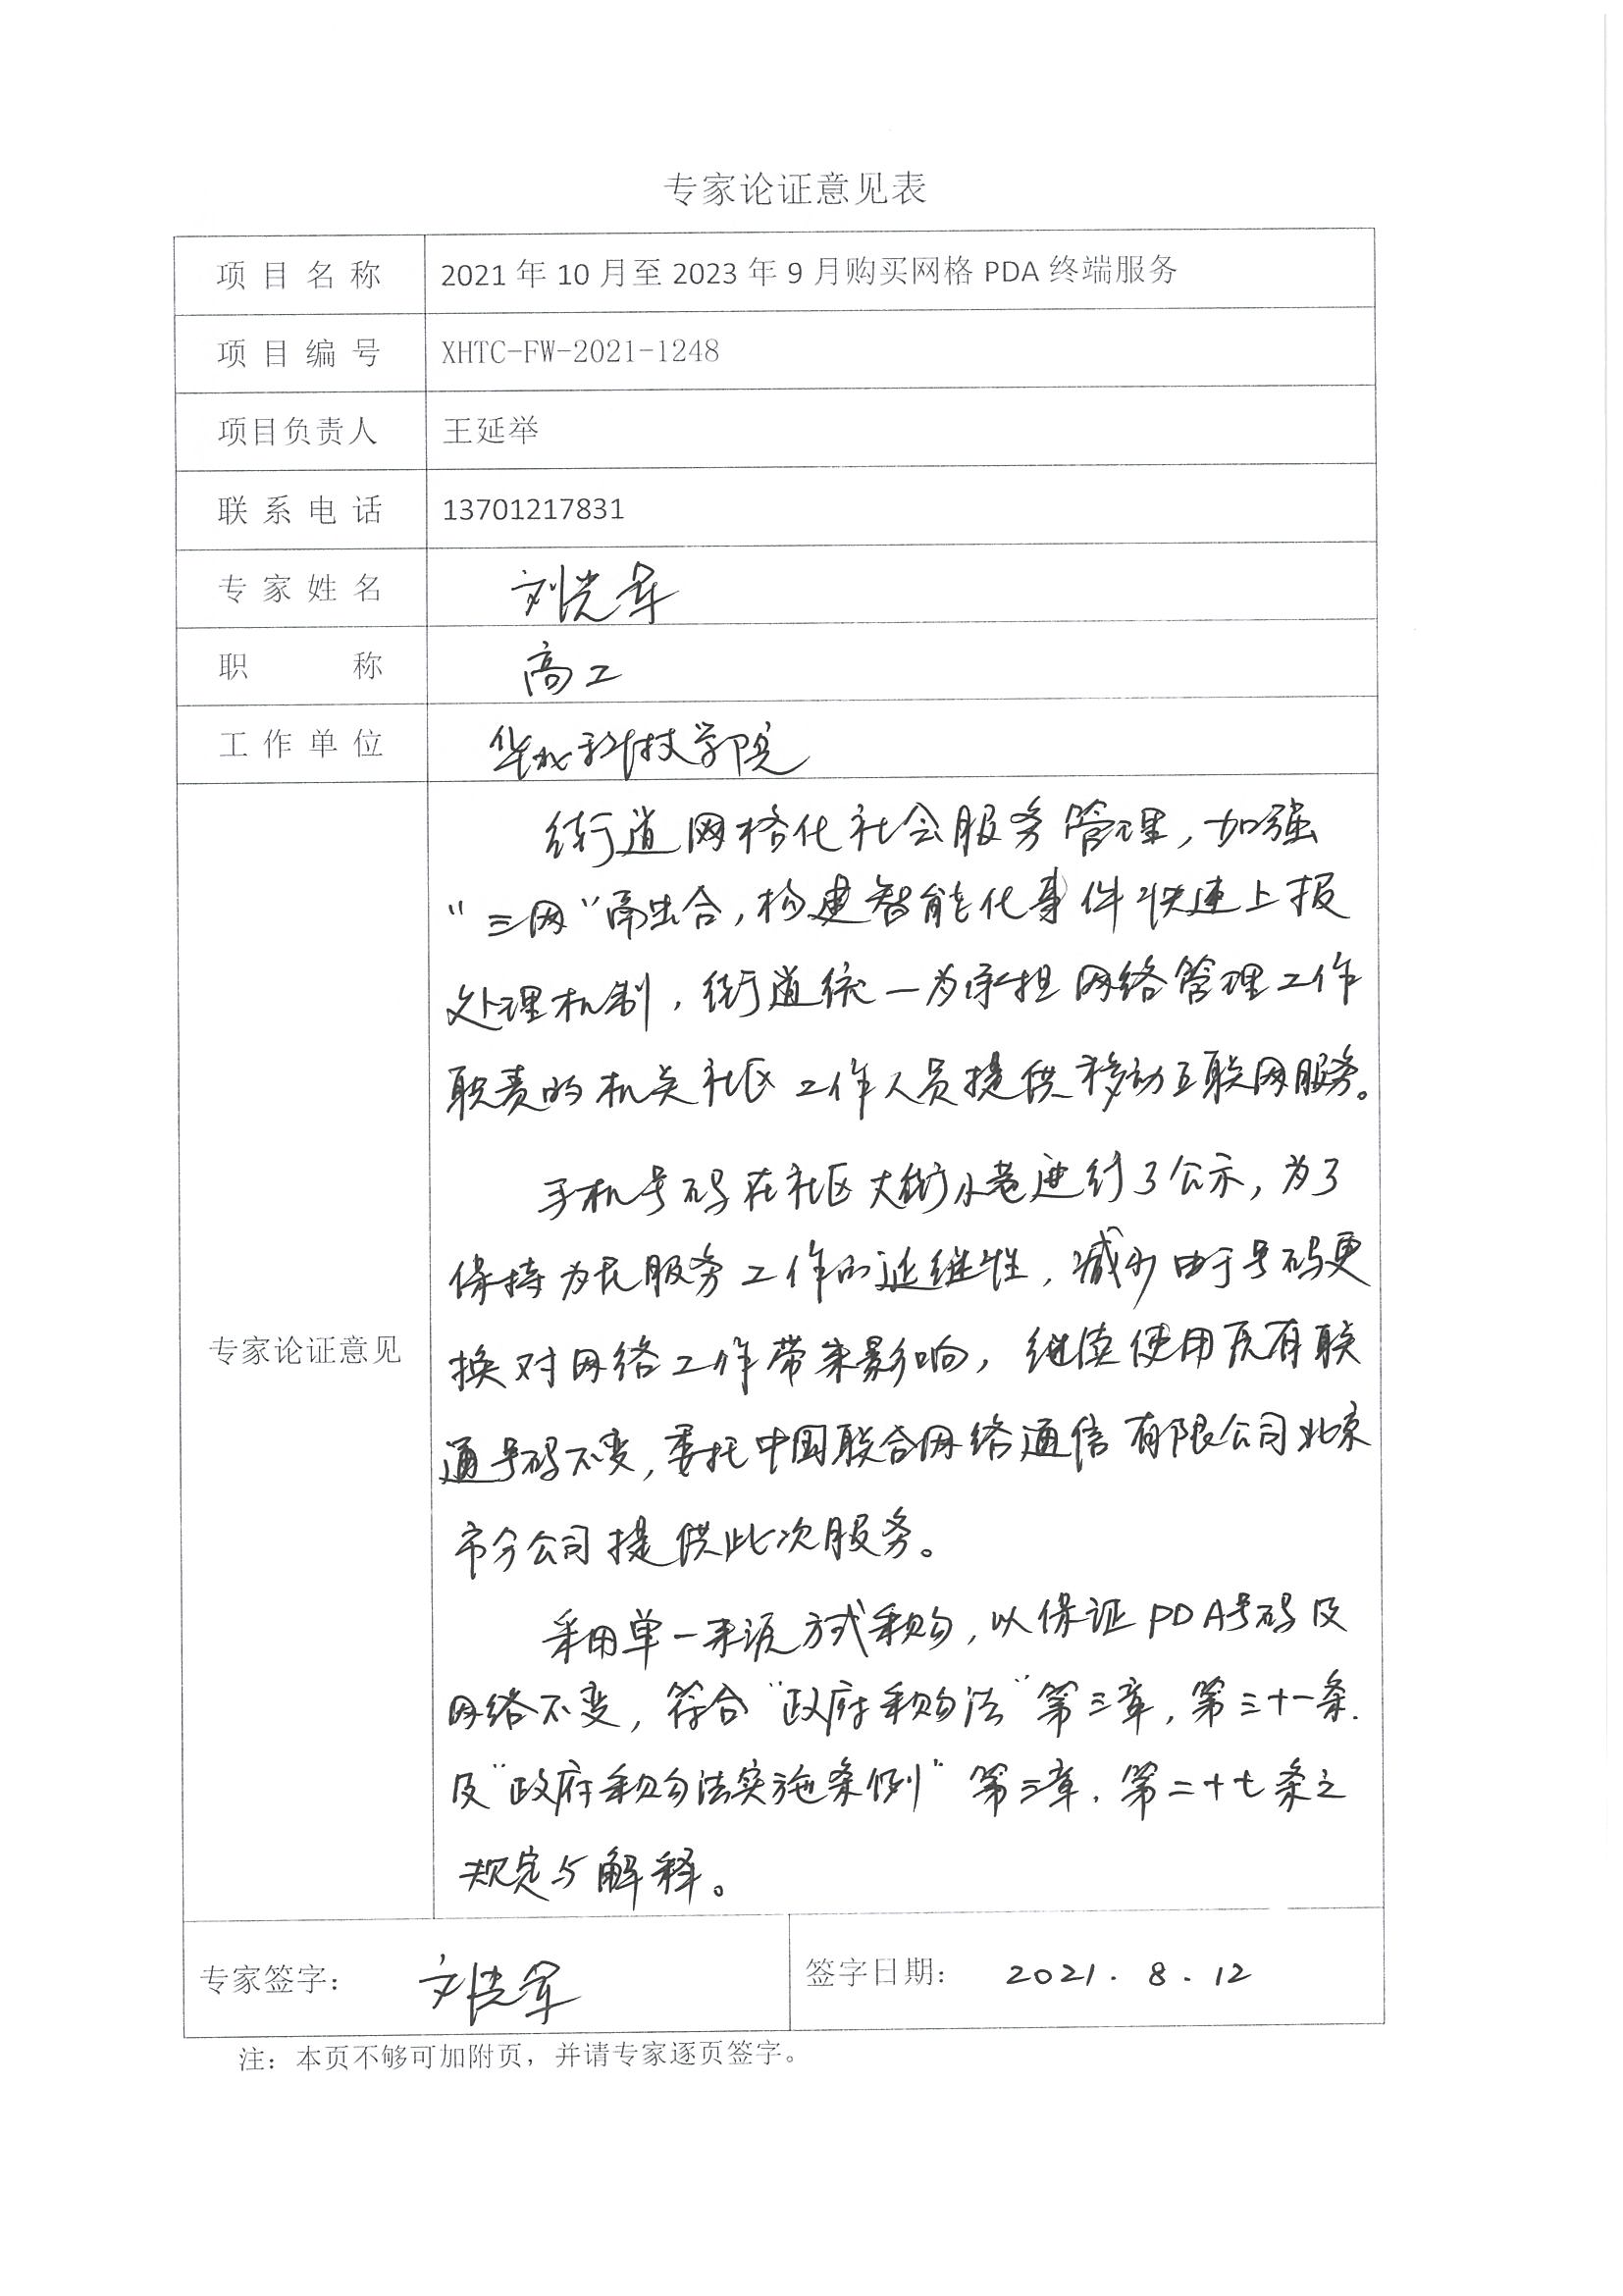 专家论证意见表
项目名称 2021年10月至2023年9月购买网格PDA终端服务
项目编号 XHTC-FW-2021-1248
项目负责人 王延举
联系电话 13701217831
专家姓名 刘光军
职称 高工
工作单位 华北科技学院
专家论证意见
街道网格化社会服务管理,加强
“三网”融合,构建智能化事件快速上报
处理机制,街道统一为承担网络管理工作
职责的机关社区工作人员提供移动互联网服务。
手机号码在社区大街小巷进行了公示,为了
保持为民服务工作的延继性,减少由于号码更
换对网络工作带来影响,继续使用原有联
通号码不变,委托中国联合网络通信有限公司北京
市分公司提供此次服务。
采用单一来源方式采购,以保证PDA号码及
网络不变,符合“政府采购法”第三章,第三十一条.
及“政府采购法实施条例”第三章,第二十七条之
规定与解释。
专家签字: 刘光军 签字日期: 2021.8.12
注:本页不够可加附页,并请专家逐页签字。